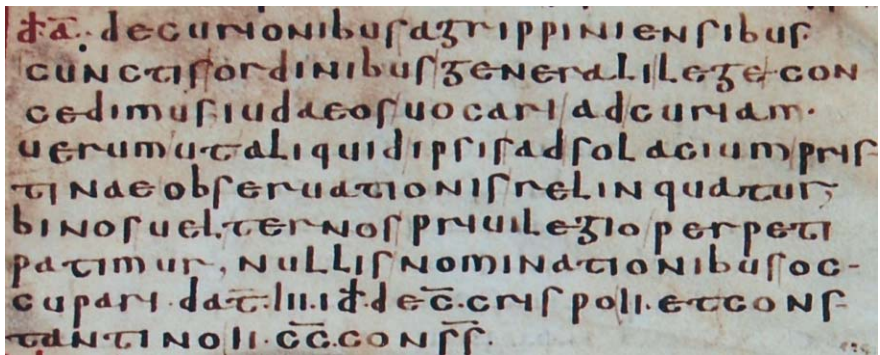 id̄ ā. decurionibus agrippiniensibus
cunctis ordinibus generali lege con
cedimus iudaeos uocari ad curiam.
uerum ut aliquid ipsis ad solacium pris
tinae obseruationis relinquatur;
binos uel ternos priuilegio perpeti
patimur, nullis nominationibus oc-
cupari. dat̄. III. id̄. dec̄. crispo II. et cons
tantino II. c̄c̄. cons̄s̄.